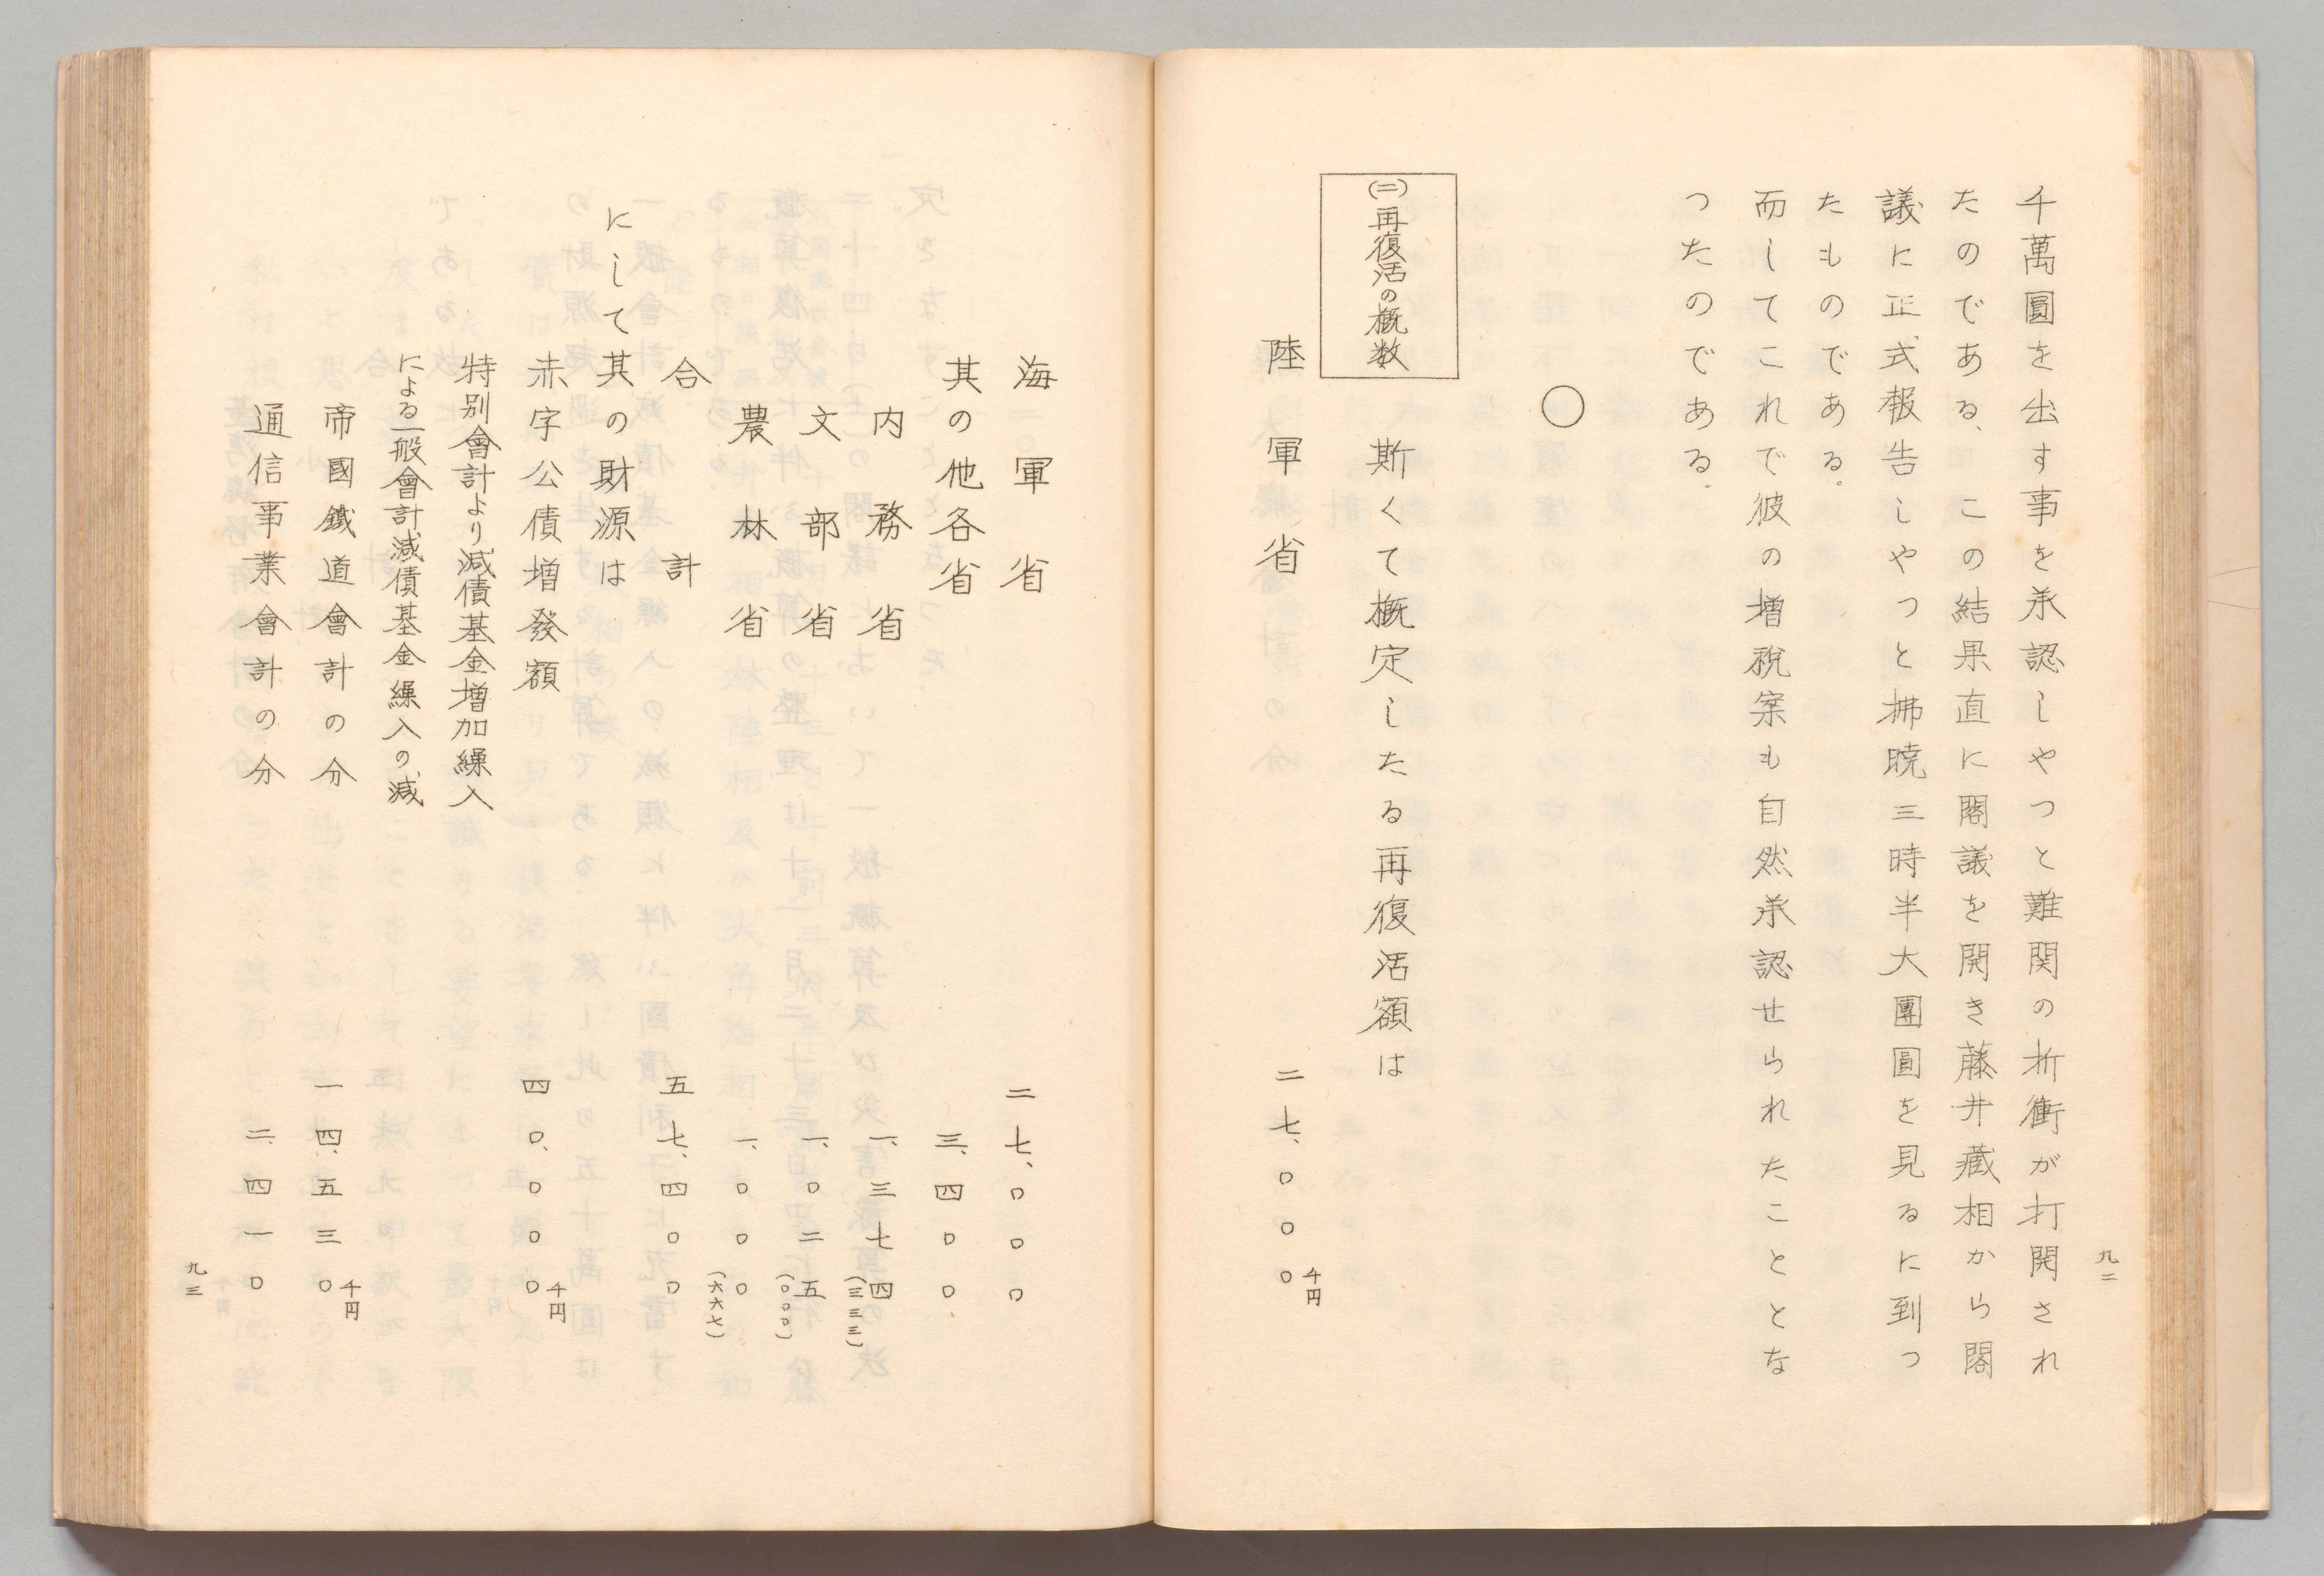 九二
千萬圓を出す事を承認しやつと難関の折衝が打開され
たのである、この結果直に閣議を開き藤井藏相から閣
議に正式報告しやつと拂暁三時半大團圓を見るに到つ
たものである。
而してこれで彼の増税案も自然承認せられたこととな
つたのである。
〇
(二)再復活の概数
斯くて概定したる再復活額は
陸軍省 二七、〇〇〇千円
海軍省 二七、〇〇〇
其の他各省 三、四〇〇
内務省 一、三七四(三三三)
文部省 一、〇二五(〇〇〇)
農林省 一、〇〇〇(六六七)
合計 五七、四〇〇
にして其の財源は
赤字公債増發額 四〇、〇〇〇千円
特別會計より減債基金増加繰入
による一般會計減債基金繰入の減
帝國鐵道會計の分 一四、五三〇千円
通信事業會計の分 二、四一〇
九三